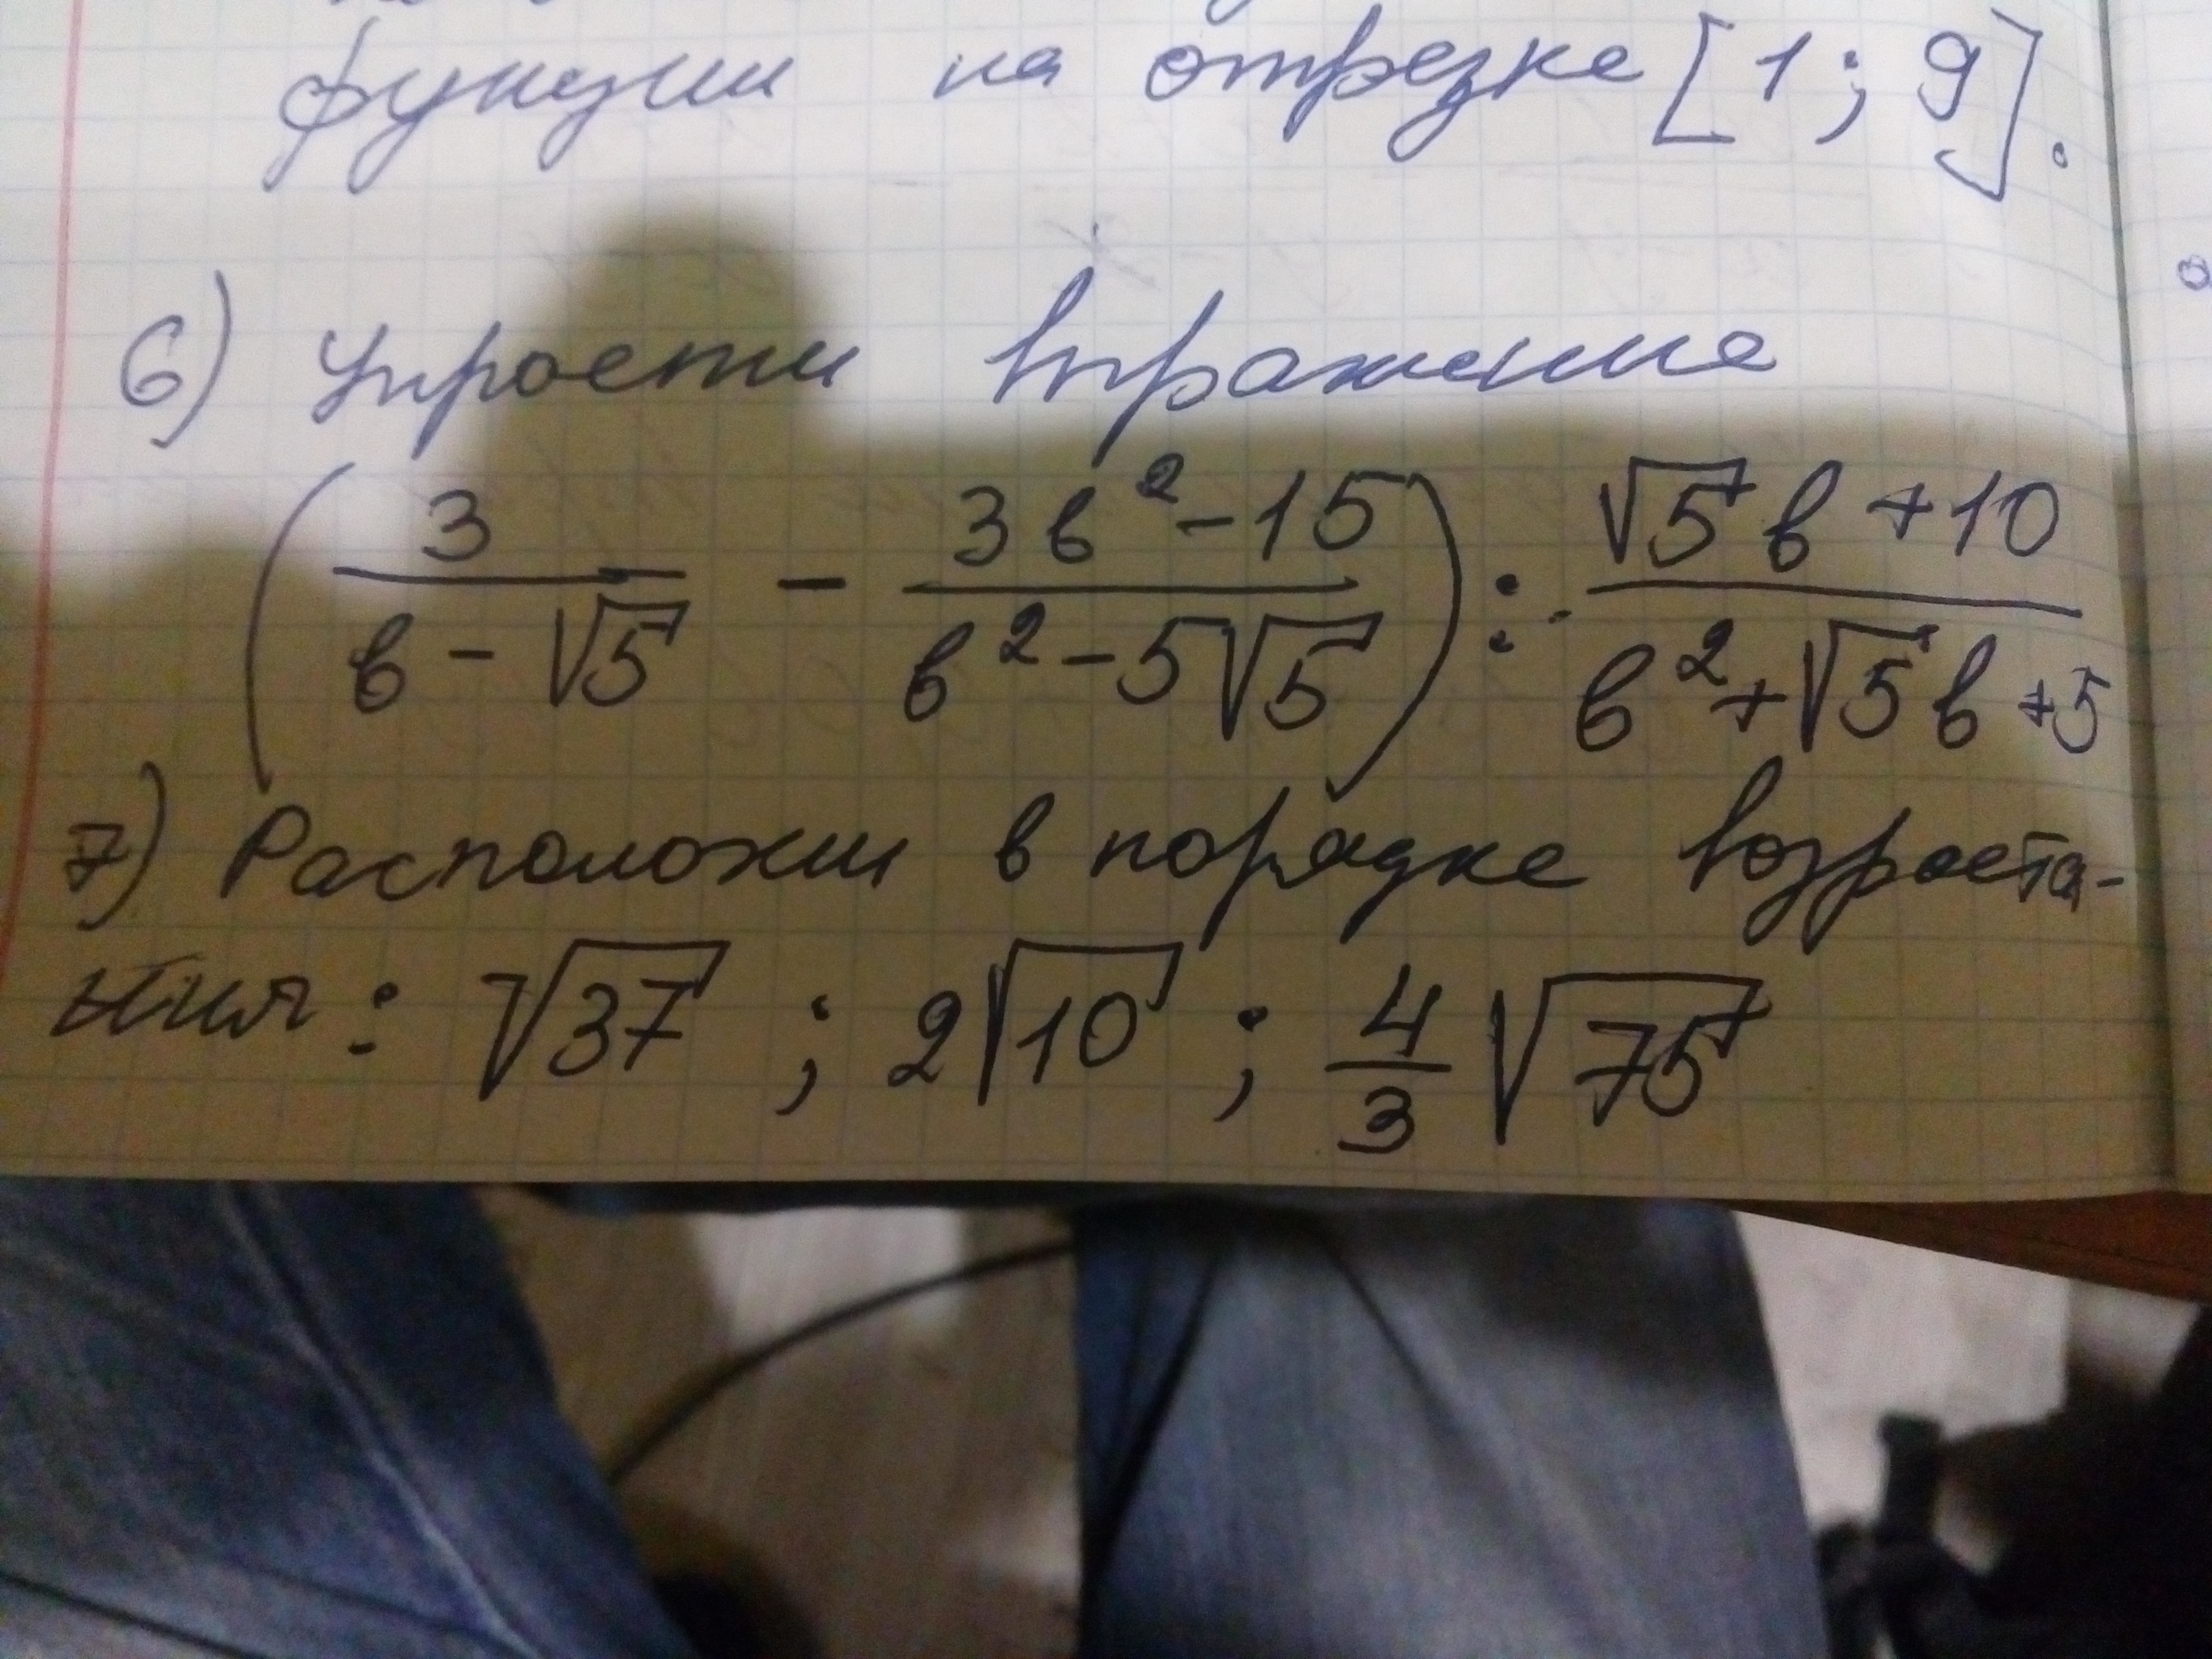 функции на отрезке [1; 9].
6) Упрости выражение
(3/(в - √5) - (3в² - 15)/(в² - 5√5)) : (√5в + 10)/(в² + √5в + 5)
7) Расположи в порядке возраста-
ния: √37 ; 2√10 ; 4/3 √75